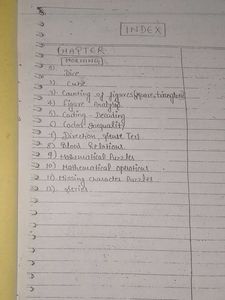 INDEX
CHAPTER
MORNING
1) Dice
2) Cube
3) Counting of figures (square, triangle etc)
4) Figure Analysis
5) Coding - Decoding
6) Coded Inequality
7) Direction sense Test
8) Blood Relations
9) Mathematical Puzzles
10) Mathematical operations
11) Missing character Puzzles
12) Series